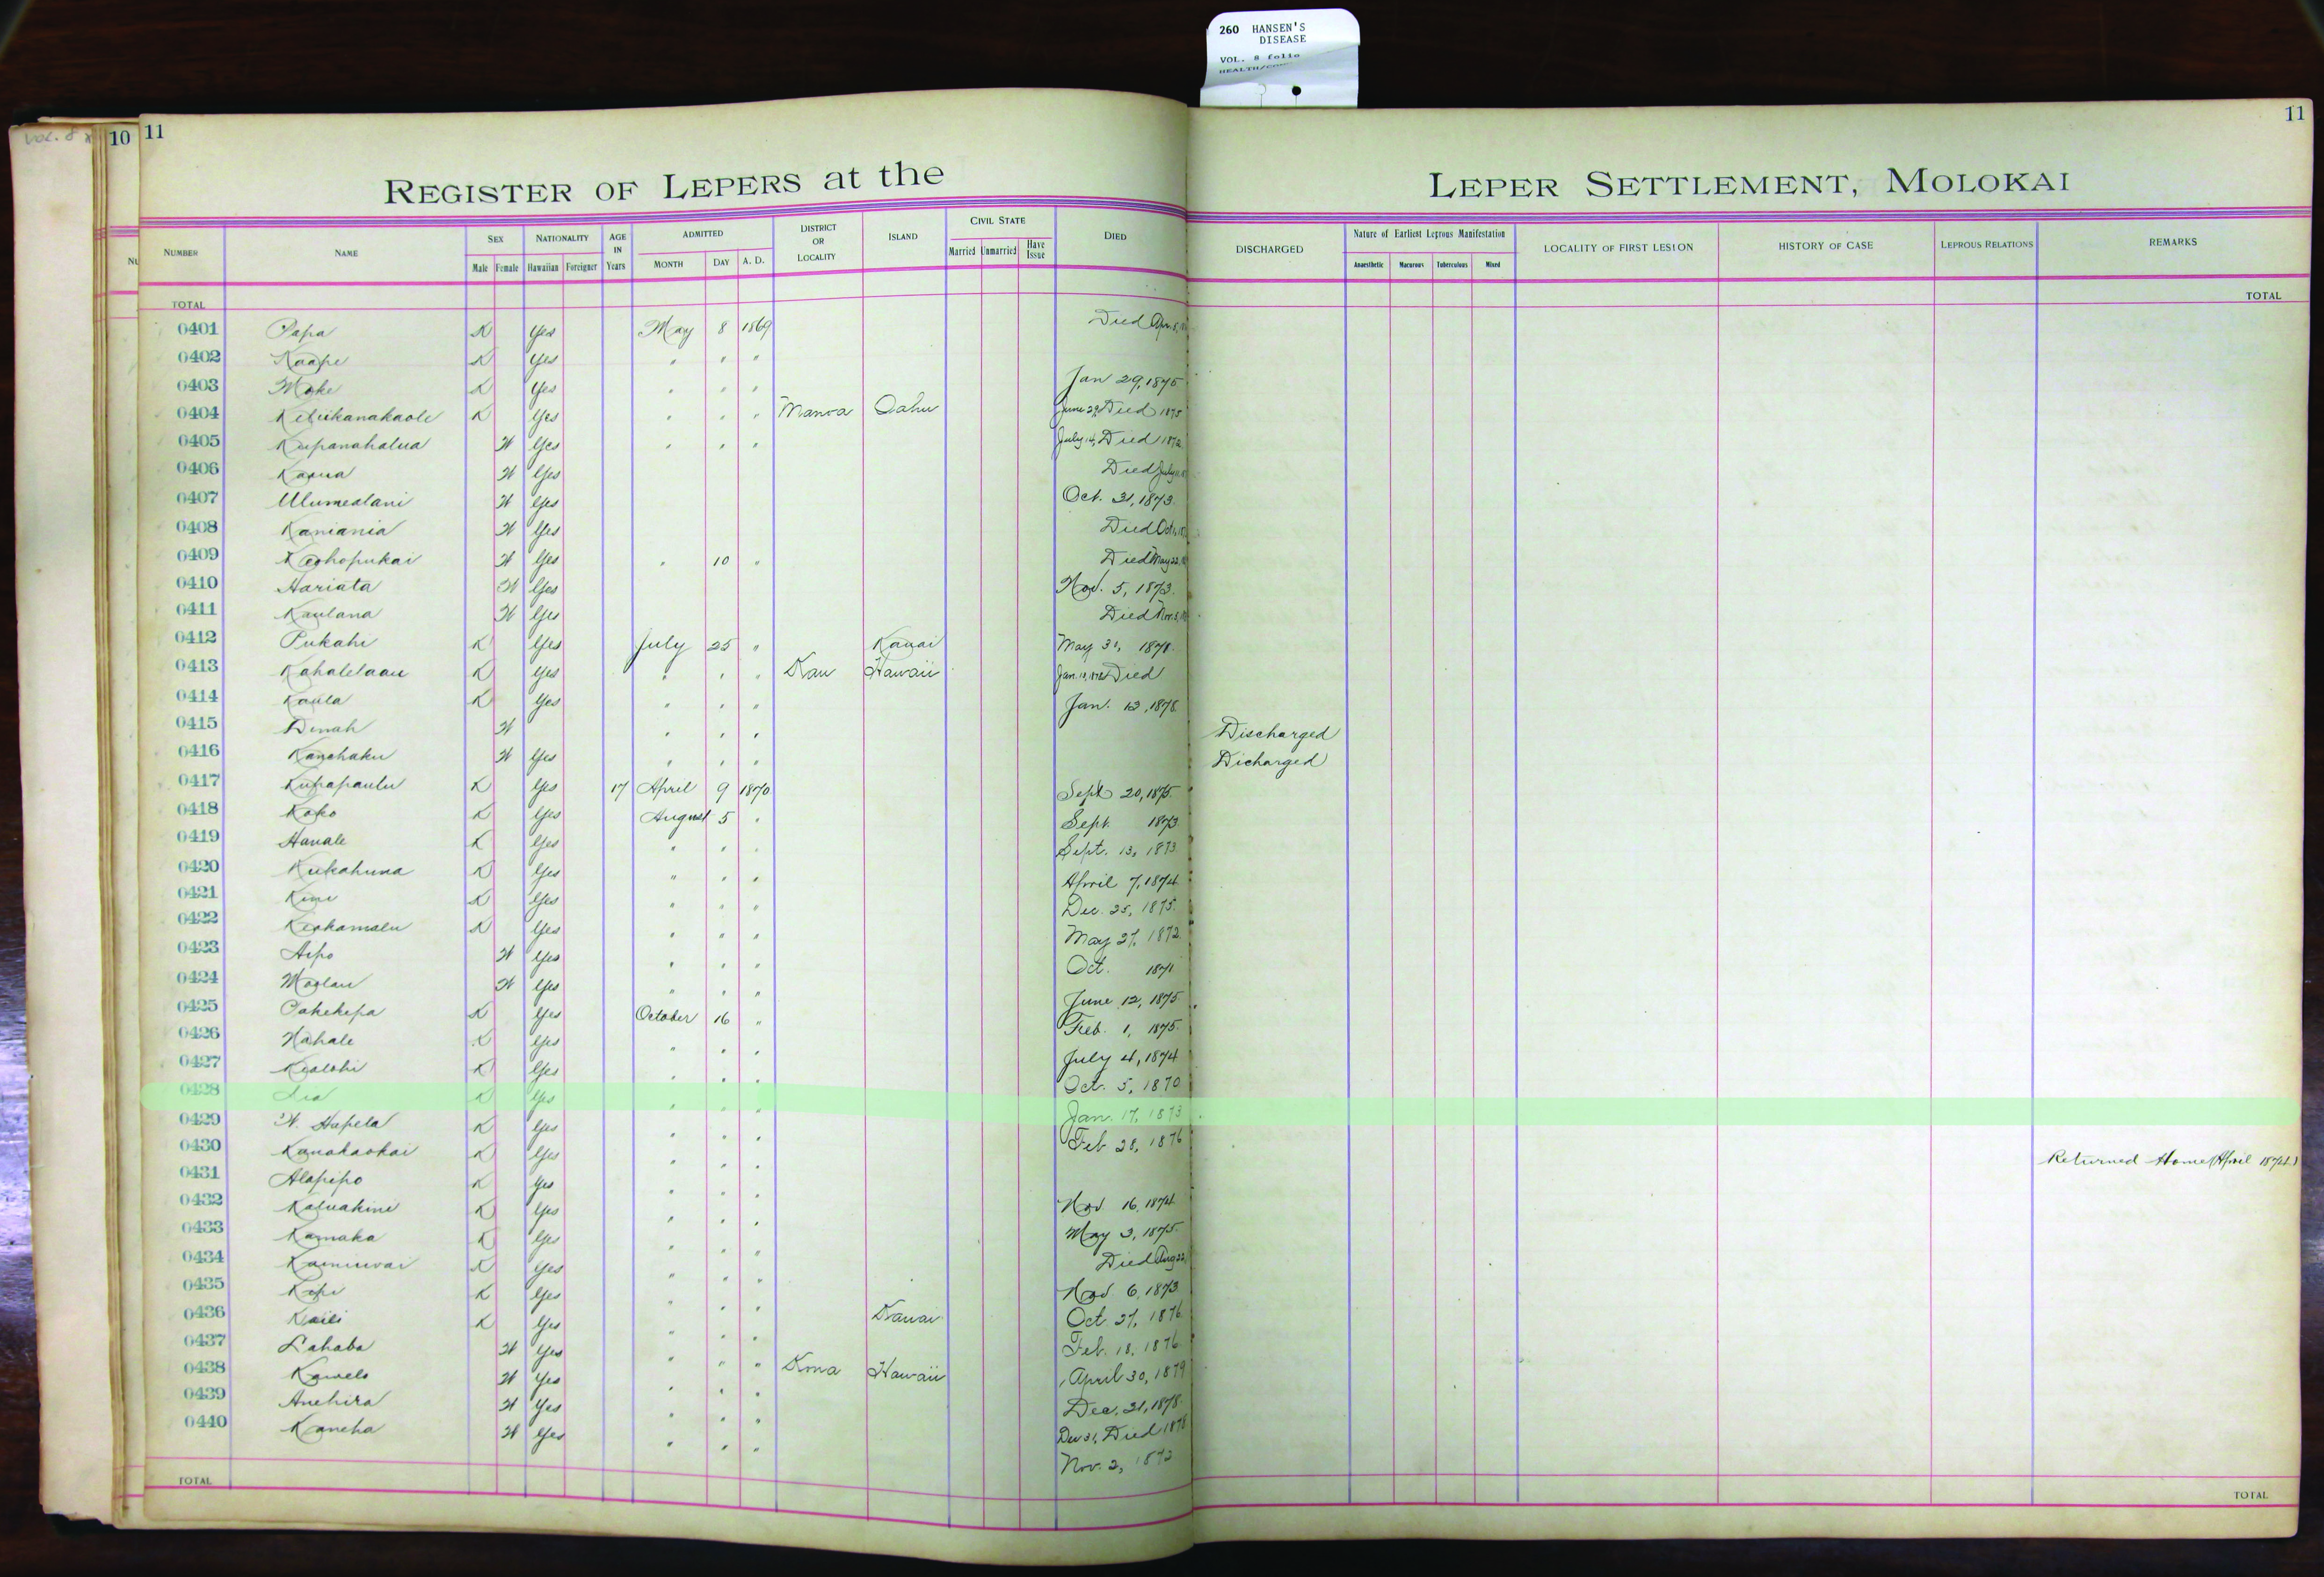 260 HANSEN'S
DISEASE
VOL. 8 folio
VOL. 8
10 11 11
REGISTER OF LEPERS at the LEPER SETTLEMENT, MOLOKAI
NUMBER NAME SEX Male Female NATIONALITY Hawaiian Foreigner AGE IN Years ADMITTED MONTH DAY A. D. DISTRICT OR LOCALITY ISLAND CIVIL STATE Married Unmarried Have Issue DIED DISCHARGED Nature of Earliest Leprous Manifestation Anaesthetic Macurous Tuberculous Mixed LOCALITY OF FIRST LESION HISTORY OF CASE LEPROUS RELATIONS REMARKS
TOTAL TOTAL
0401 Papa K Yes May 8 1869 Died Apr. 8,
0402 Kaape K Yes " " "
0403 Moke K Yes " " " Jan 29, 1875
0404 Keliikanakaole K Yes " " " Manoa Oahu June 29, Died 1875
0405 Kupanahalua W Yes " " " July 14, Died 1872
0406 W Yes Died July
0407 Ulumealani W Yes Oct. 31, 1873
0408 Kaniania W Yes Died Oct.
0409 Keohopukai W Yes " 10 " Died May 22,
0410 Hariata W Yes Nov. 5, 1873
0411 Kaulana W Yes Died Nov. 3,
0412 Pukahi K Yes July 25 " Kauai May 31, 1871
0413 Kahalelaau K Yes " " " Kau Hawaii Jan. Died
0414 Kaula K Yes " " " Jan. 13, 1878
0415 Dinah W " " " Discharged
0416 W Yes " " " Dicharged
0417 Kupapaulu K Yes 17 April 9 1870 Sept 20, 1875
0418 Koko K Yes August 5 " Sept. 1873
0419 Hanale K Yes " " " Sept. 13, 1873
0420 Kukahuna K Yes " " " April 7, 1874
0421 Kimi K Yes " " " Dec. 25, 1875
0422 Keohamalu K Yes " " " May 27, 1872
0423 Aipo W Yes " " " Oct. 1871
0424 Moolau W Yes " " " June 12, 1875
0425 Pakekepa K Yes October 16 " Feb. 1, 1875
0426 Nahale K Yes " " " July 4, 1874
0427 Kealohi K Yes " " " Oct. 5, 1870
0428 K Yes " " " Jan. 17, 1873
0429 W. Hapela K Yes " " " Feb 28, 1876
0430 Kanakaokai K Yes " " " Returned Home (April 1874)
0431 Alapipo K Yes " " " Nov. 16, 1874
0432 Kaluakini K Yes " " " May 3, 1875
0433 Kamaka K Yes " " " Died Aug 22,
0434 K Yes " " " Nov. 6, 1873
0435 Kepi K Yes " " " Oct. 27, 1876
0436 Kaili K Yes " " " Kauai Feb. 18, 1876
0437 Lahaba W Yes " " " Kona Hawaii April 30, 1879
0438 Kawelo W Yes " " " Dec. 31, 1878
0439 Anehira W Yes " " " Dec 31, Died 1878
0440 Kaneha W Yes " " " Nov. 2, 1872
TOTAL TOTAL